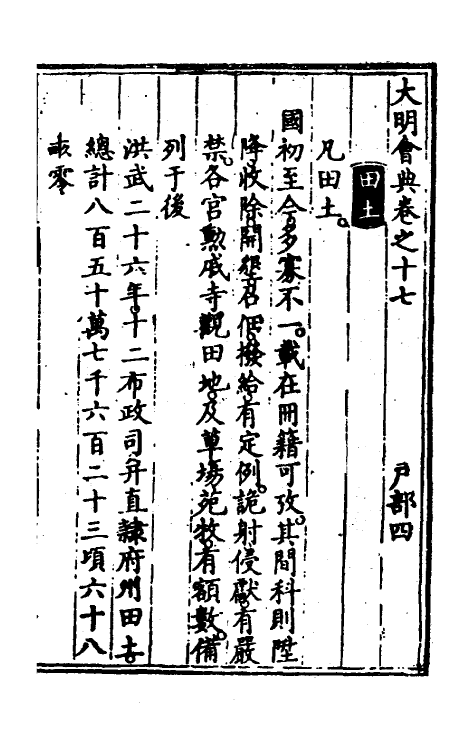 大明會典卷之十七　　戶部四
田土
凡田土。
國初至今多寡不一。載在冊籍可攷。其間科則陞
降收除。開墾召佃。撥給有定例。詭射侵獻。有嚴
禁。各宮勳戚寺觀田地。及草場苑牧。有額數。備
列于後
洪武二十六年。十二布政司并直隸府州田土。
總計八百五十萬七千六百二十三頃六十八
畝零